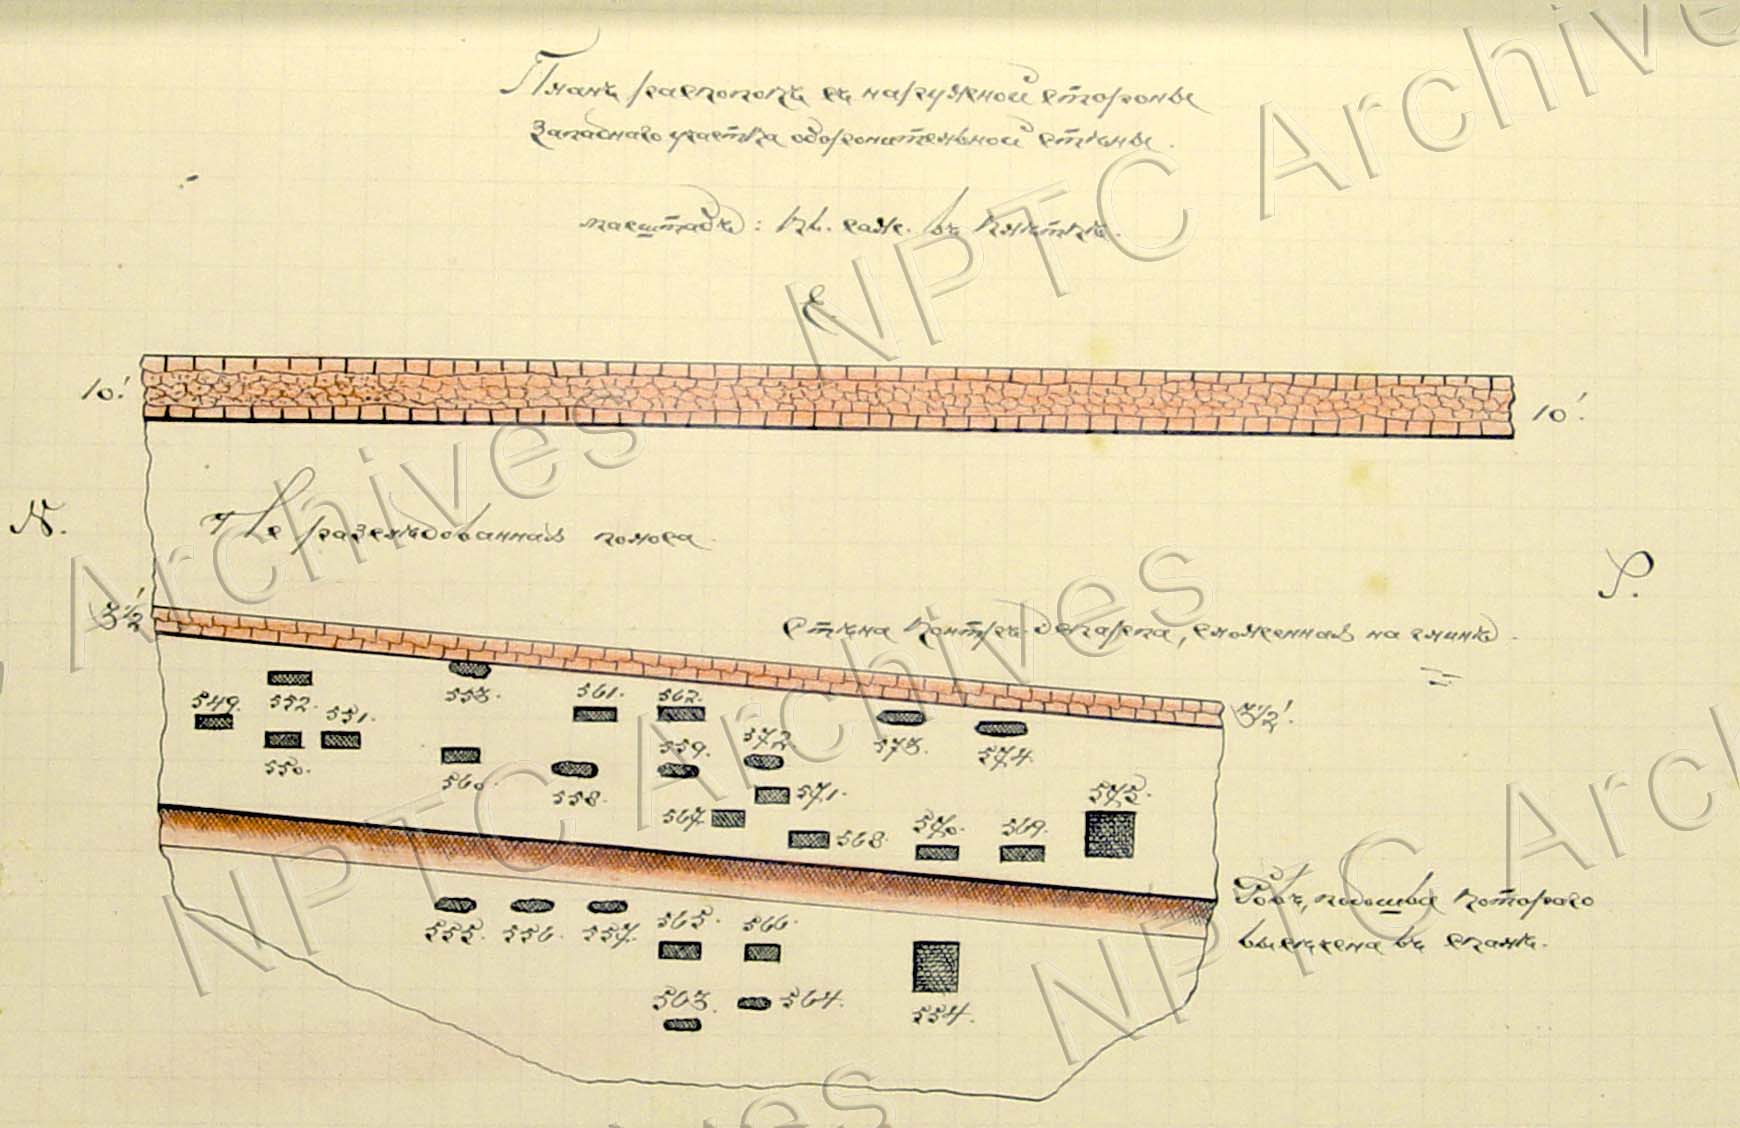 Планъ раскопокъ съ наружной стороны
Западнаго участка оборонительной стѣны.
масштабъ: кв. саж. въ клѣткѣ.
E.
10'.
10'.
N.
Не разслѣдованная полоса.
S.
3½'
Стѣна контръ-эскарпа, сложенная на глинѣ.
3½'.
549.
552.
551.
550.
553.
560.
561.
558.
562.
559.
572.
571.
567.
568.
573.
574.
570.
569.
575.
Ровъ, подошва котораго
высѣчена въ скалѣ.
555.
556.
557.
565.
566.
563.
564.
554.
NPTC Archives
NPTC Archives
NPTC Archives